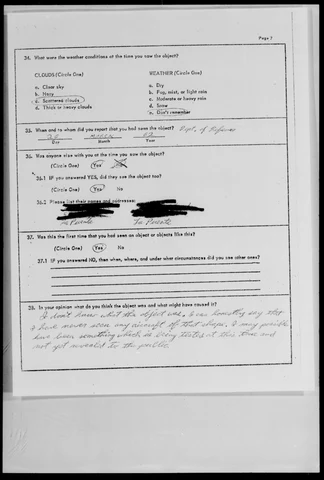 Page 7
34. What were the weather conditions at the time you saw the object?
CLOUDS (Circle One) WEATHER (Circle One)
a. Clear sky a. Dry
b. Hazy b. Fog, mist, or light rain
c. Scattered clouds c. Moderate or heavy rain
d. Thick or heavy clouds d. Snow
e. Don't remember
35. When and to whom did you report that you had seen the object? Dept. of Defense
Day Month Year
36. Was anyone else with you at the time you saw the object?
(Circle One) Yes No
36.1 IF you answered YES, did they see the object too?
(Circle One) Yes No
36.2 Please list their names and addresses:
37. Was this the first time that you had seen an object or objects like this?
(Circle One) Yes No
37.1 IF you answered NO, then when, where, and under what circumstances did you see other ones?
38. In your opinion what do you think the object was and what might have caused it?
I don't know what the object was, I can honestly say that
I have never seen any aircraft of that shape, it may possible
have been something which is being tested at this time and
not yet revealed to the public.